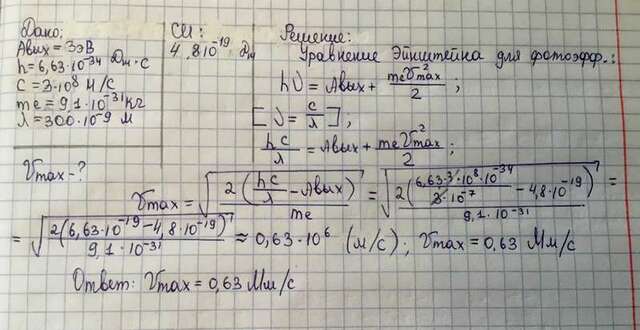 Дано:
Aвых = 3эВ
h = 6,63·10⁻³⁴ Дж·с
c = 3·10⁸ м/с
me = 9,1·10⁻³¹ кг
λ = 300·10⁻⁹ м
Vmax - ?
СИ:
4,8·10⁻¹⁹ Дж
Решение:
Уравнение Эйнштейна для фотоэфф.:
hν = Aвых + meVmax²/2 ;
[ν = c/λ],
hc/λ = Aвых + meVmax²/2 ;
Vmax = √(2(hc/λ − Aвых)/me) = √(2(6,63·3·10⁸·10⁻³⁴/3·10⁻⁷ − 4,8·10⁻¹⁹)/9,1·10⁻³¹) =
= √(2(6,63·10⁻¹⁹ − 4,8·10⁻¹⁹)/9,1·10⁻³¹) ≈ 0,63·10⁶ (м/с); Vmax = 0,63 Мм/с
Ответ: Vmax = 0,63 Мм/с